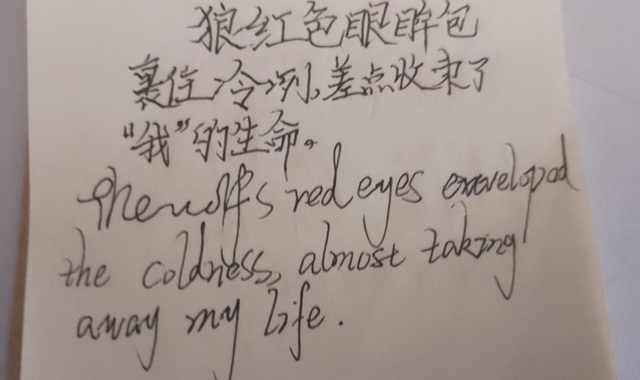 狼红色眼眸包
裹住冷冽,差点收束了
“我”的生命。
The wolf's red eyes enveloped
the coldness, almost taking
away my life.